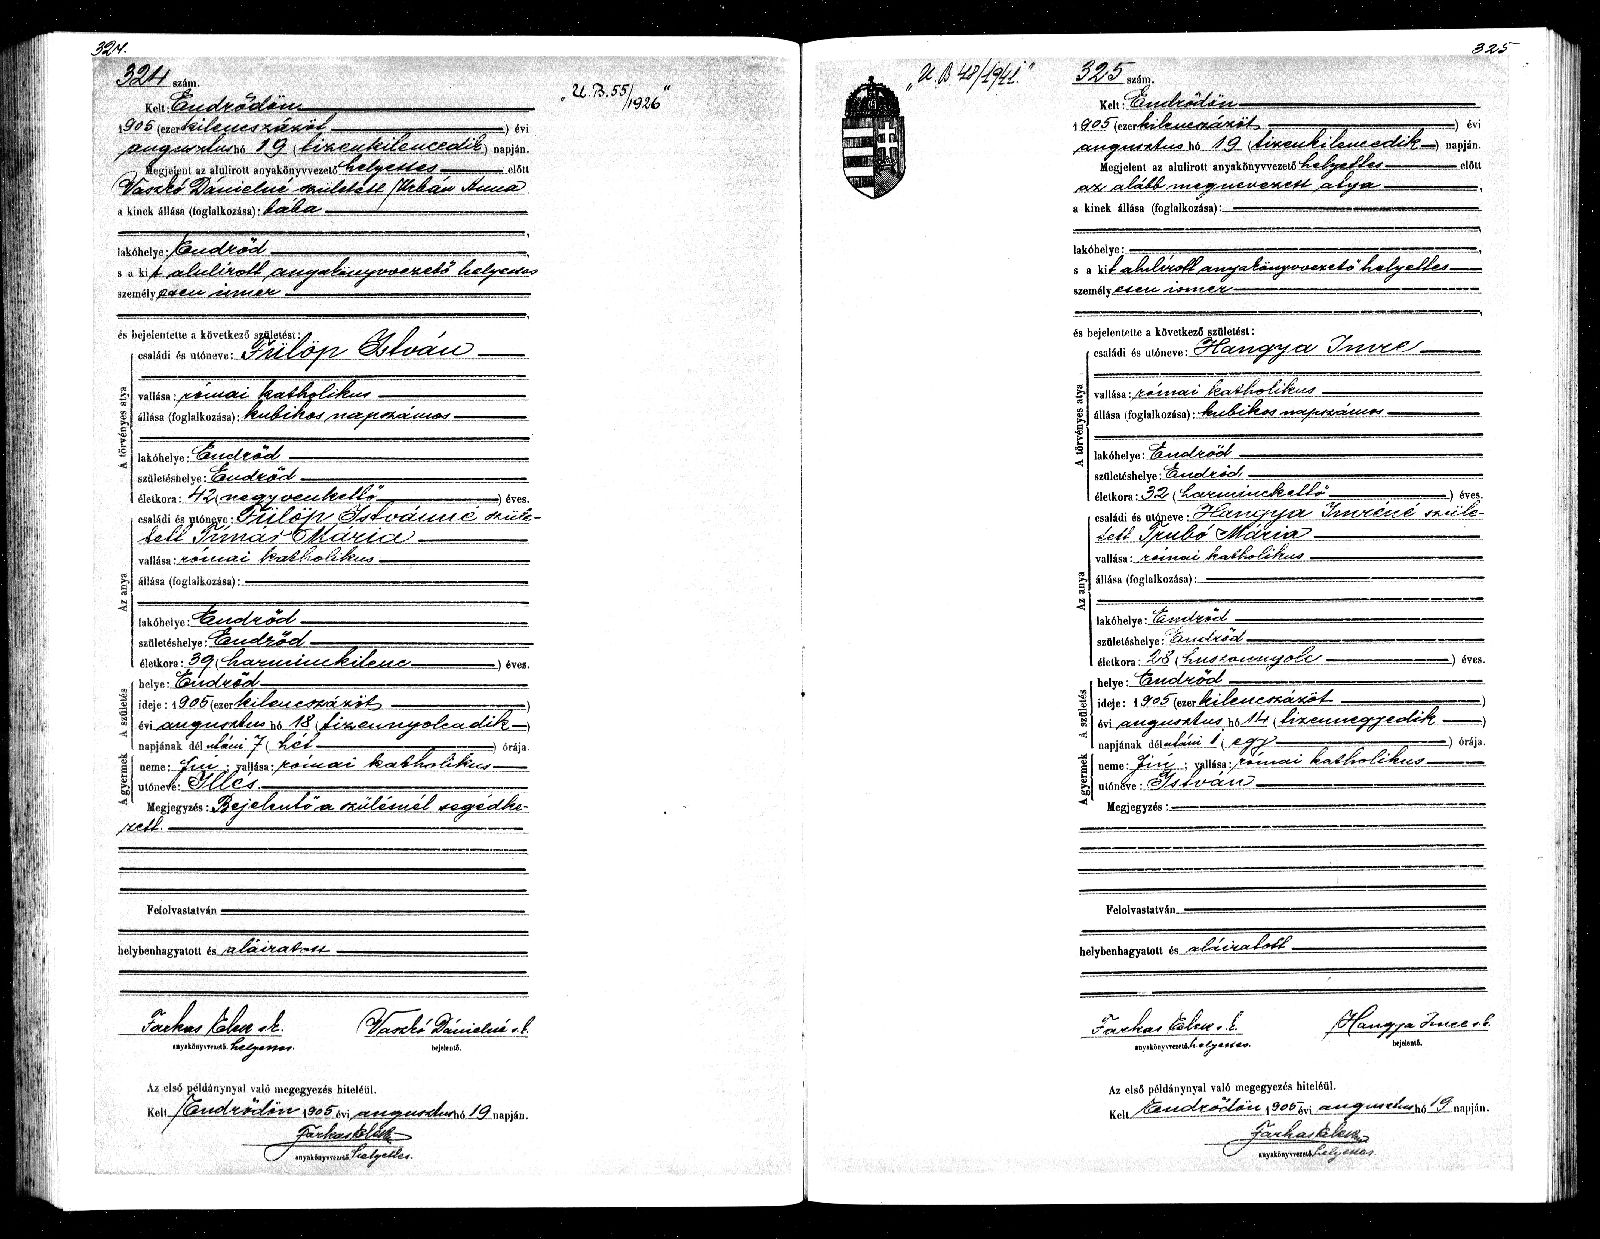 324.
324 szám.
„U. B. 55/1926"
Kelt: Endrődön
1905 (ezer kilenczázöt) évi
augusztus hó 19 (tizenkilencedik) napján.
Megjelent az alulirott anyakönyvvezető helyettes előtt
Vaszkó Dánielné született Urbán Anna
a kinek állása (foglalkozása): bába
lakóhelye: Endrőd
s a kit alulírott anyakönyvvezető helyettes
személyesen ismer
és bejelentette a következő születést:
A törvényes atya
családi és utóneve: Fülöp István
vallása: római katholikus
állása (foglalkozása): kubikos napszámos
lakóhelye: Endrőd
születéshelye: Endrőd
életkora: 42 (negyvenkettő) éves.
Az anya
családi és utóneve: Fülöp Istvánné szüle-
tett Tímár Mária
vallása: római katholikus
állása (foglalkozása):
lakóhelye: Endrőd
születéshelye: Endrőd
életkora: 39 (harminckilenc) éves.
A születés
helye: Endrőd
ideje: 1905 (ezer kilenczázöt)
évi augusztus hó 18 (tizennyolcadik)
napjának dél utáni 7 (hét) órája.
A gyermek
neme: fiú; vallása: római katholikus
utóneve: Illés
Megjegyzés: Bejelentő a szülésnél segédke-
zett.
Felolvastatván
helybenhagyatott és aláiratott
Farkas Elek sk. Vaszkó Dánielné s.k.
anyakönyvvezető helyettes. bejelentő.
Az első példánynyal való megegyezés hiteléül.
Kelt Endrődön 1905 évi augusztus hó 19 napján.
Farkas Elek
anyakönyvvezető helyettes.
325
„U. B 48/1941."
325 szám.
Kelt: Endrődön
1905 (ezer kilenczázöt) évi
augusztus hó 19 (tizenkilencedik) napján.
Megjelent az alulirott anyakönyvvezető helyettes előtt
az alább megnevezett atya
a kinek állása (foglalkozása):
lakóhelye:
s a kit alulírott anyakönyvvezető helyettes
személyesen ismer
és bejelentette a következő születést:
A törvényes atya
családi és utóneve: Hangya Imre
vallása: római katholikus
állása (foglalkozása): kubikos napszámos
lakóhelye: Endrőd
születéshelye: Endrőd
életkora: 32 (harminckettő) éves.
Az anya
családi és utóneve: Hangya Imréné szüle-
tett Trubó Mária
vallása: római katholikus
állása (foglalkozása):
lakóhelye: Endrőd
születéshelye: Endrőd
életkora: 28 (huszonnyolc) éves.
A születés
helye: Endrőd
ideje: 1905 (ezer kilenczázöt)
évi augusztus hó 14 (tizennegyedik)
napjának dél utáni 1 (egy) órája.
A gyermek
neme: fiú; vallása: római katholikus
utóneve: István
Megjegyzés:
Felolvastatván
helybenhagyatott és aláiratott
Farkas Elek s.k. Hangya Imre s.k.
anyakönyvvezető helyettes. bejelentő.
Az első példánynyal való megegyezés hiteléül.
Kelt Endrődön 1905 évi augusztus hó 19 napján.
Farkas Elek
anyakönyvvezető helyettes.